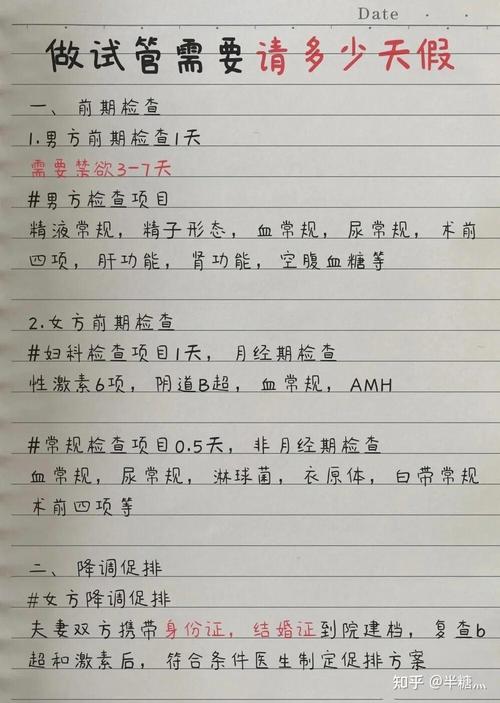 Date
做试管需要请多少天假
一、前期检查
1.男方前期检查1天
需要禁欲3-7天
#男方检查项目
精液常规，精子形态，血常规，尿常规，术前
四项，肝功能，肾功能，空腹血糖等
2.女方前期检查
#妇科检查项目1天，月经期检查
性激素6项，阴道B超，血常规，AMH
#常规检查项目0.5天，非月经期检查
血常规，尿常规，淋球菌，衣原体，白带常规
术前四项等
二、降调促排
#女方降调促排
夫妻双方携带身份证，结婚证到院建档，复查b
超和激素后，符合条件医生制定促排方案
知乎 @半糖灬